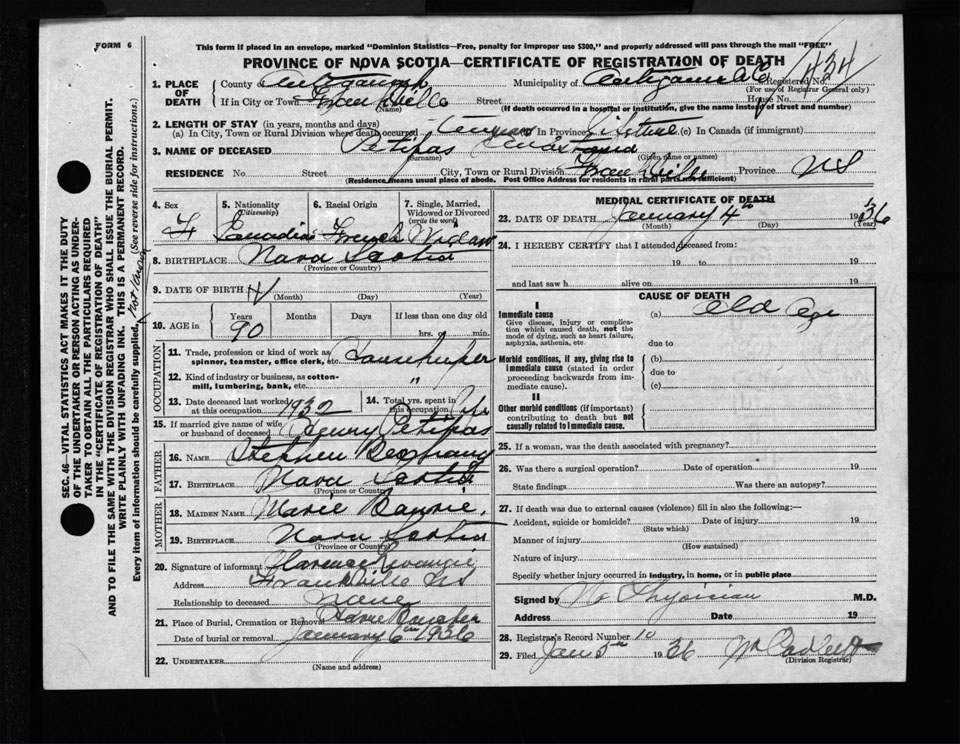 FORM 6
This form if placed in an envelope, marked "Dominion Statistics—Free, penalty for improper use $300," and properly addressed will pass through the mail "FREE"
PROVINCE OF NOVA SCOTIA—CERTIFICATE OF REGISTRATION OF DEATH
434
1. PLACE OF DEATH
County of Antigonish
Municipality of Antigonish Co
Registered No.
(For use of Registrar General only)
If in City or Town Frankville
(Name)
Street
House No.
(If death occurred in a hospital or institution, give the name instead of street and number)
2. LENGTH OF STAY (in years, months and days)
(a) In City, Town or Rural Division where death occurred
(b) In Province Lifetime (c) In Canada (if immigrant)
3. NAME OF DECEASED Petipas
(Surname) (Given name or names)
RESIDENCE No. Street City, Town or Rural Division Frankville Province NS
(Residence means usual place of abode. Post Office Address for residents in rural parts not sufficient)
4. Sex
F
5. Nationality
(Citizenship)
Canadian
6. Racial Origin
French
7. Single, Married, Widowed or Divorced
(write the word)
Widow
8. BIRTHPLACE Nova Scotia
(Province or Country)
9. DATE OF BIRTH
(Month) (Day) (Year)
10. AGE in
Years Months Days If less than one day old
90 hrs. or min.
OCCUPATION
11. Trade, profession or kind of work as spinner, teamster, office clerk, etc. Housekeeper
12. Kind of industry or business, as cotton-mill, lumbering, bank, etc. "
13. Date deceased last worked at this occupation 1932
14. Total yrs. spent in this occupation
15. If married give name of wife or husband of deceased Henry Petipas
FATHER
16. NAME Stephen
17. BIRTHPLACE Nova Scotia
(Province or Country)
MOTHER
18. MAIDEN NAME Marie
19. BIRTHPLACE Nova Scotia
(Province or Country)
20. Signature of informant Clarence
Address Frankville NS
Relationship to deceased none
21. Place of Burial, Cremation or Removal Havre Boucher
Date of burial or removal January 6th 1936
22. UNDERTAKER
(Name and address)
MEDICAL CERTIFICATE OF DEATH
23. DATE OF DEATH January 4th 1936
(Month) (Day) (Year)
24. I HEREBY CERTIFY that I attended deceased from:
19 to 19
and last saw h alive on 19
CAUSE OF DEATH
I
Immediate cause
Give disease, injury or complication which caused death, not the mode of dying, such as heart failure, asphyxia, asthenia, etc.
(a) Old Age
due to
Morbid conditions, if any, giving rise to immediate cause (stated in order proceeding backwards from immediate cause).
(b)
due to
(c)
II
Other morbid conditions (if important) contributing to death but not causally related to immediate cause.
25. If a woman, was the death associated with pregnancy?
26. Was there a surgical operation? Date of operation 19
State findings Was there an autopsy?
27. If death was due to external causes (violence) fill in also the following:—
Accident, suicide or homicide? Date of injury 19
(State which)
Manner of injury
(How sustained)
Nature of injury
Specify whether injury occurred in industry, in home, or in public place
Signed by No Physician M.D.
Address Date 19
28. Registrar's Record Number 10
29. Filed Jan 5th 1936
(Division Registrar)
SEC. 46—VITAL STATISTICS ACT MAKES IT THE DUTY
OF THE UNDERTAKER OR PERSON ACTING AS UNDER-
TAKER TO OBTAIN ALL THE PARTICULARS REQUIRED
IN THE "CERTIFICATE OF REGISTRATION OF DEATH"
AND TO FILE THE SAME WITH THE DIVISION REGISTRAR WHO SHALL ISSUE THE BURIAL PERMIT.
WRITE PLAINLY WITH UNFADING INK. THIS IS A PERMANENT RECORD.
Every item of information should be carefully supplied. (See reverse side for instructions.)